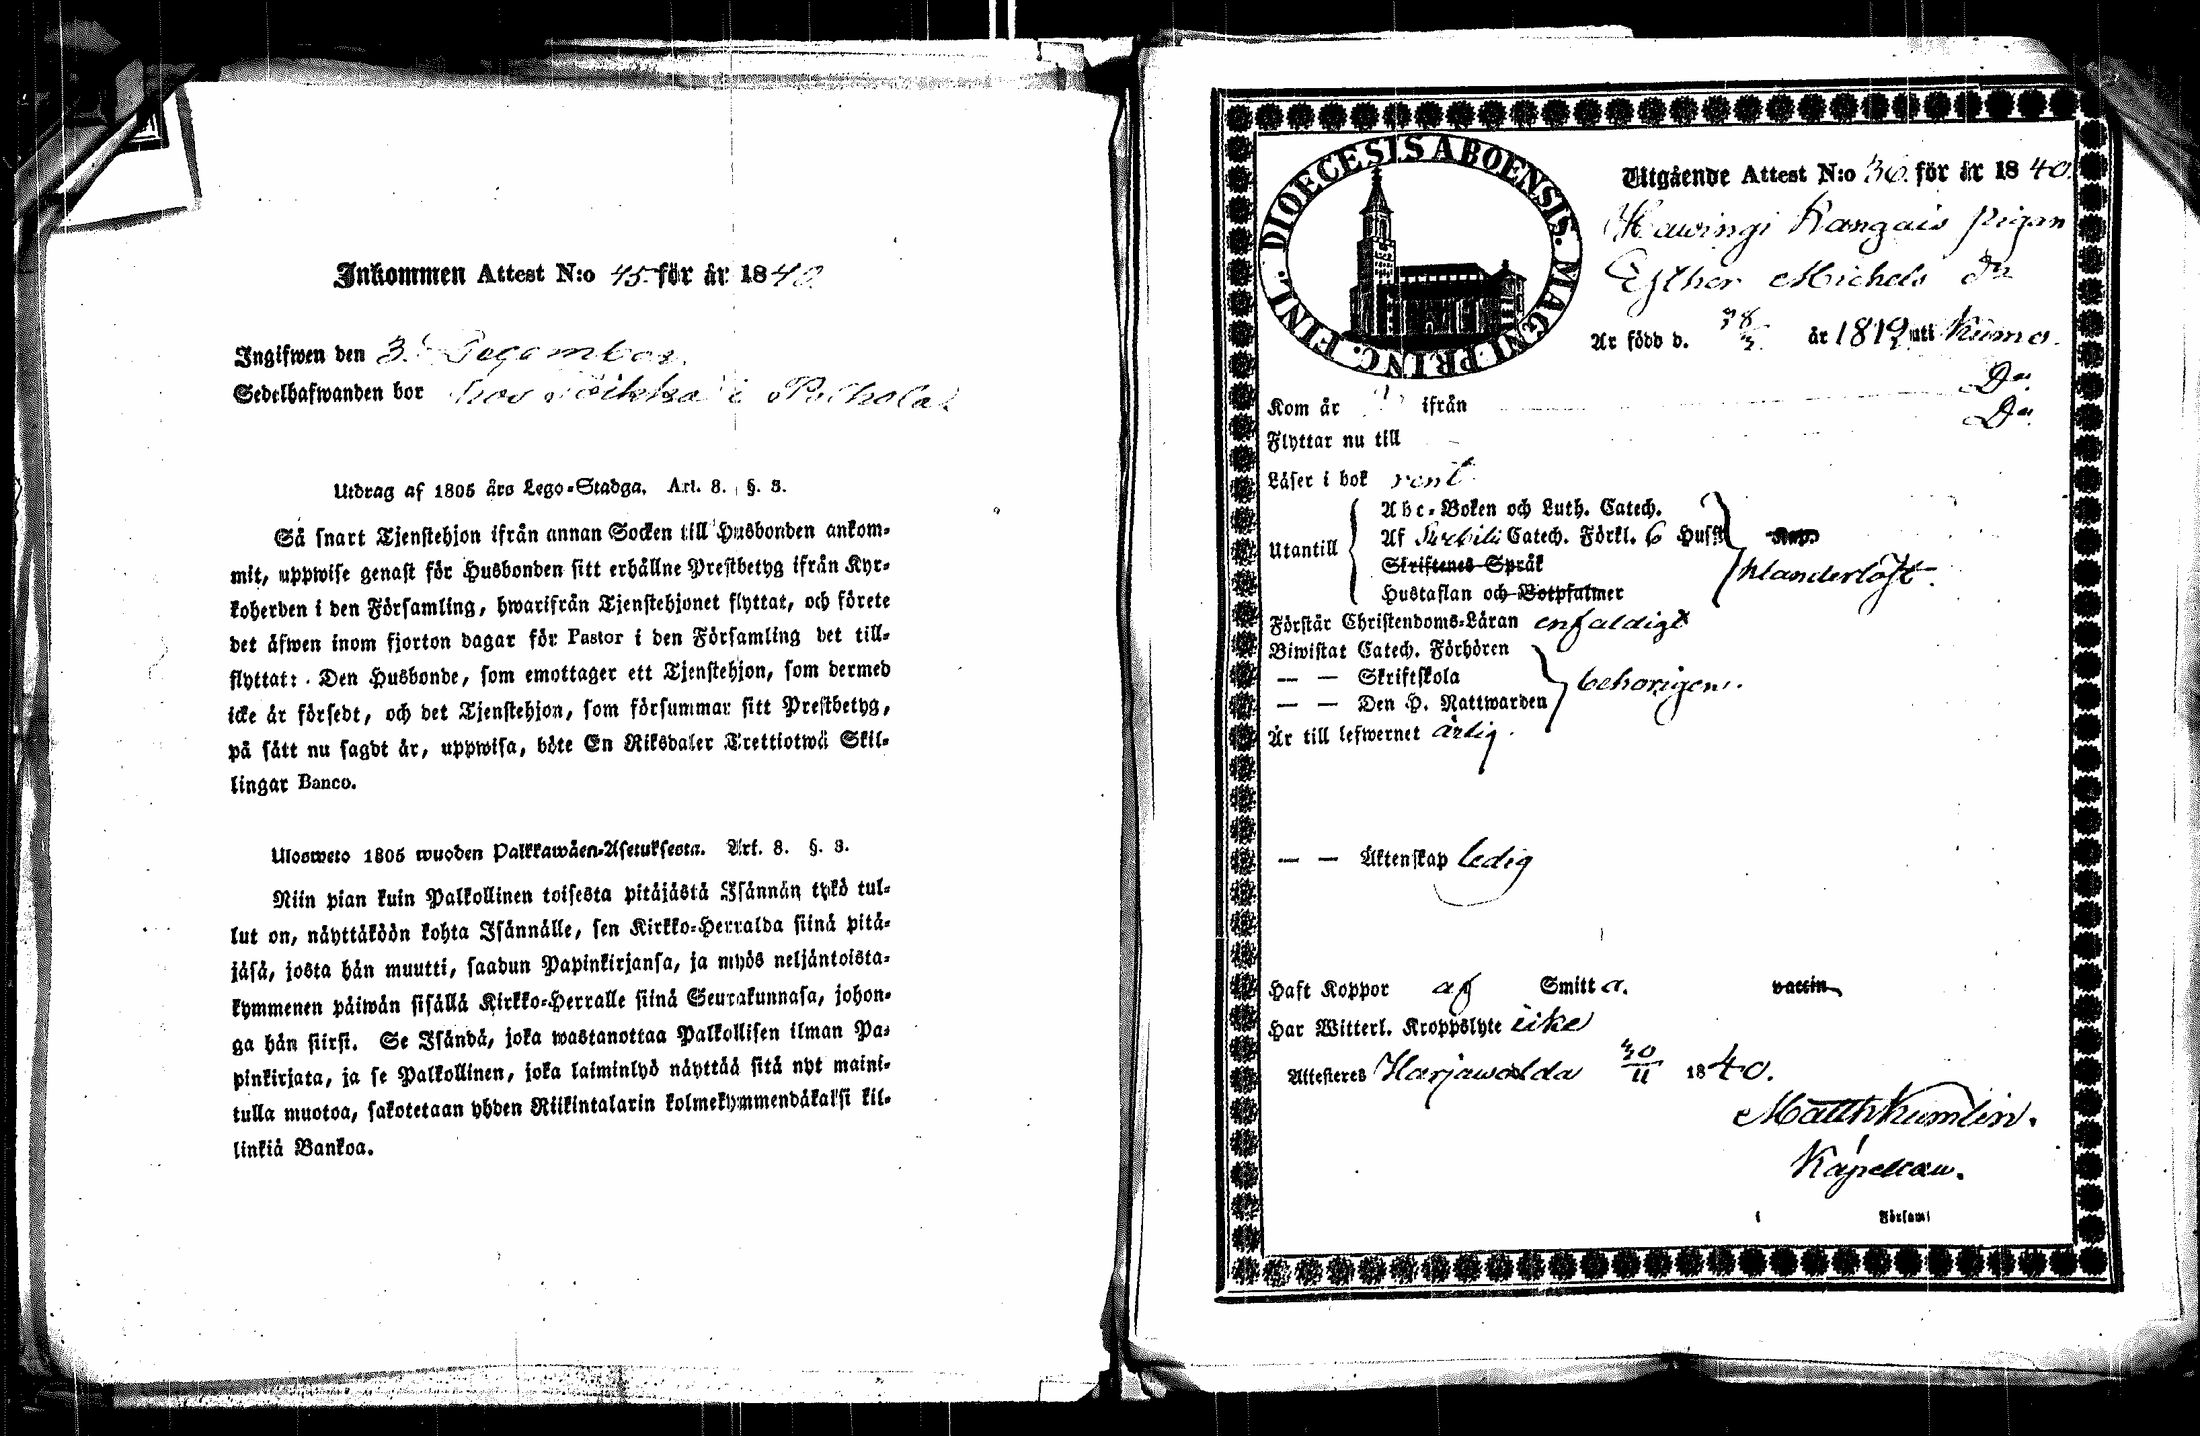 Inkommen Attest N:o 45 för år 1840
Ingifwen den 3. December
Sedelhafwanden bor hos i
Utdrag af 1805 års Lego-Stadga. Art. 8. §. 3.
Så snart Tjenstehjon ifrån annan Socken till Husbonden ankom-
mit, uppwise genast för Husbonden sitt erhållne Prestbetyg ifrån Kyr-
koherden i den Församling, hwarifrån Tjenstehjonet flyttat, och förete
det äfwen inom fjorton dagar för Pastor i den Församling det till-
flyttat: Den Husbonde, som emottager ett Tjenstehjon, som dermed
icke är försedt, och det Tjenstehjon, som försummar sitt Prestbetyg,
på sätt nu sagdt är, uppwisa, böte En Riksdaler Trettiotwå Skil-
lingar Banco.
Ulosweto 1805 wuoden Palkkawäen-Asetuksesta. Art. 8. §. 3.
Niin pian kuin Palkollinen toisesta pitäjästä Isännän tykö tul-
lut on, näyttäköön kohta Isännälle, sen Kirkko-Herralda siinä pitä-
jäsä, josta hän muutti, saadun Papinkirjansa, ja myös neljäntoista-
kymmenen päiwän sisällä Kirkko-Herralle siinä Seurakunnasa, johon-
ga hän siirsi. Se Isändä, joka wastanottaa Palkollisen ilman Pa-
pinkirjata, ja se Palkollinen, joka laiminlyö näyttää sitä nyt maini-
tulla muotoa, sakotetaan yhden Riikintalarin kolmekymmendäkaksi kil-
linkiä Bankoa.
DIOECESIS ABOENSIS. MAGNI PRINC. FINL.
Utgående Attest N:o 36 för år 1840.
Hawingi Kangais pigan
Esther Michels dr
Är född d. 28/3 år 1819 uti Kumo.
Kom år ifrån Do
Flyttar nu till Do
Läser i bok rent
Utantill
Abc-Boken och Luth. Catech.
Af Swebilii Catech. Förkl. 6 Hufst
Skriftenes Språk
Hustaflan och Botpsalmer
klanderlöst.
Förstår Christendoms-Läran enfaldigt
Biwistat Catech. Förhören
— — Skriftskola
— — Den H. Nattwarden
behörigen.
Är till lefwernet ärlig.
— — Äktenskap ledig
Haft Koppor af Smitta. vaccin
Har Witterl. Kroppslyte icke
Attesteres Harjawalda 30/11 1840.
Matth Kumlin.
Kapellan.
i Församl